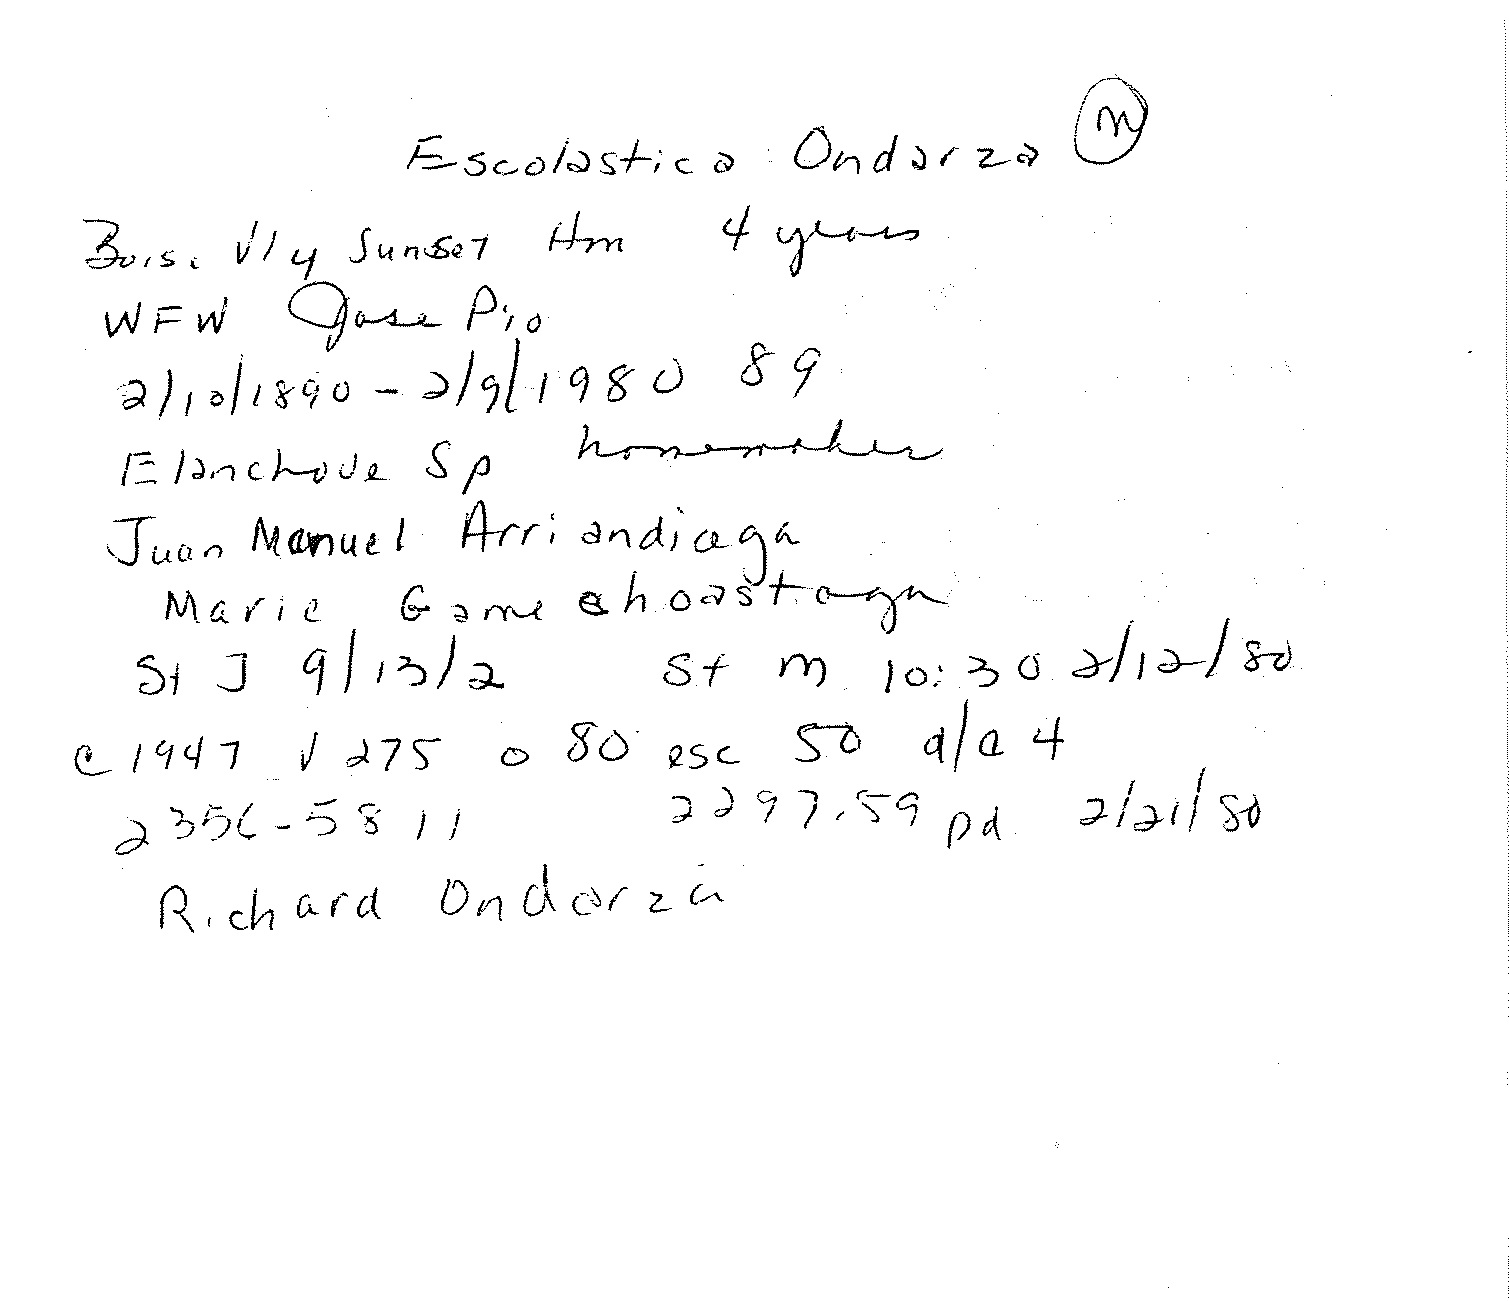 Escolastica Ondarza m
Boise Vly Sunset Hm 4 years
WFW Jose Pio
2/10/1890 - 2/9/1980 89
Elanchove Sp homemaker
Juan Manuel Arriandiaga
Marie Gamechoastaga
St J 9/13/2 St M 10:30 2/12/80
c 1947 v 275 o 80 esc 50 d/c 4
2356-5811 2297.59 pd 2/21/80
Richard Ondarza